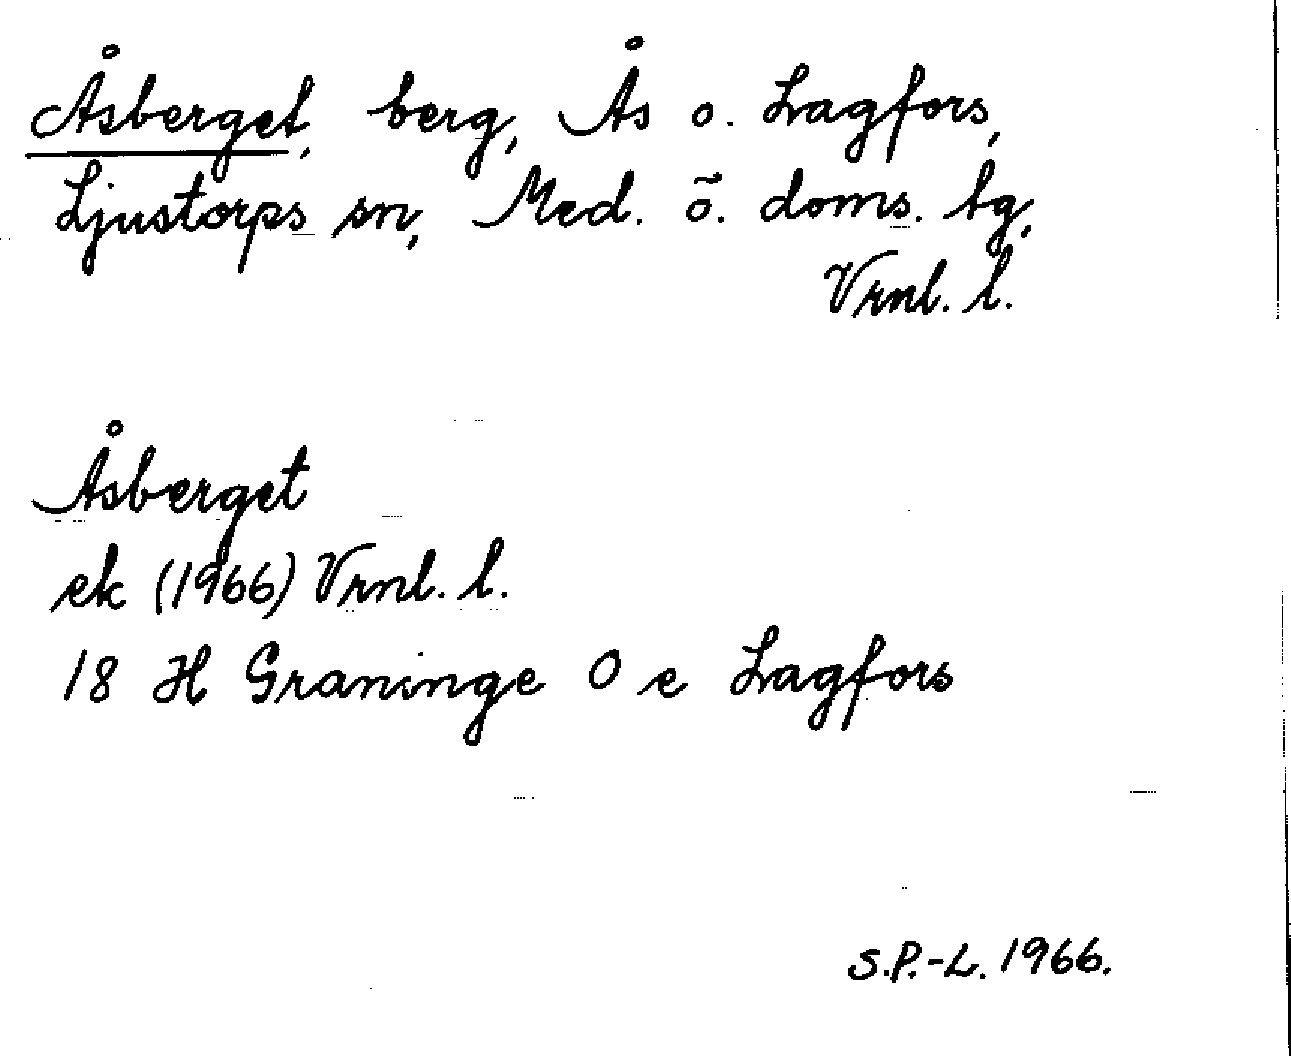 Åsberget, berg, Ås o. Lagfors,
Ljustorps sn, Med. ö. doms. tg,
Vrnl. l.
Åsberget
ek (1966) Vrnl. l.
18 H Graninge O e Lagfors
S.P.-L. 1966.